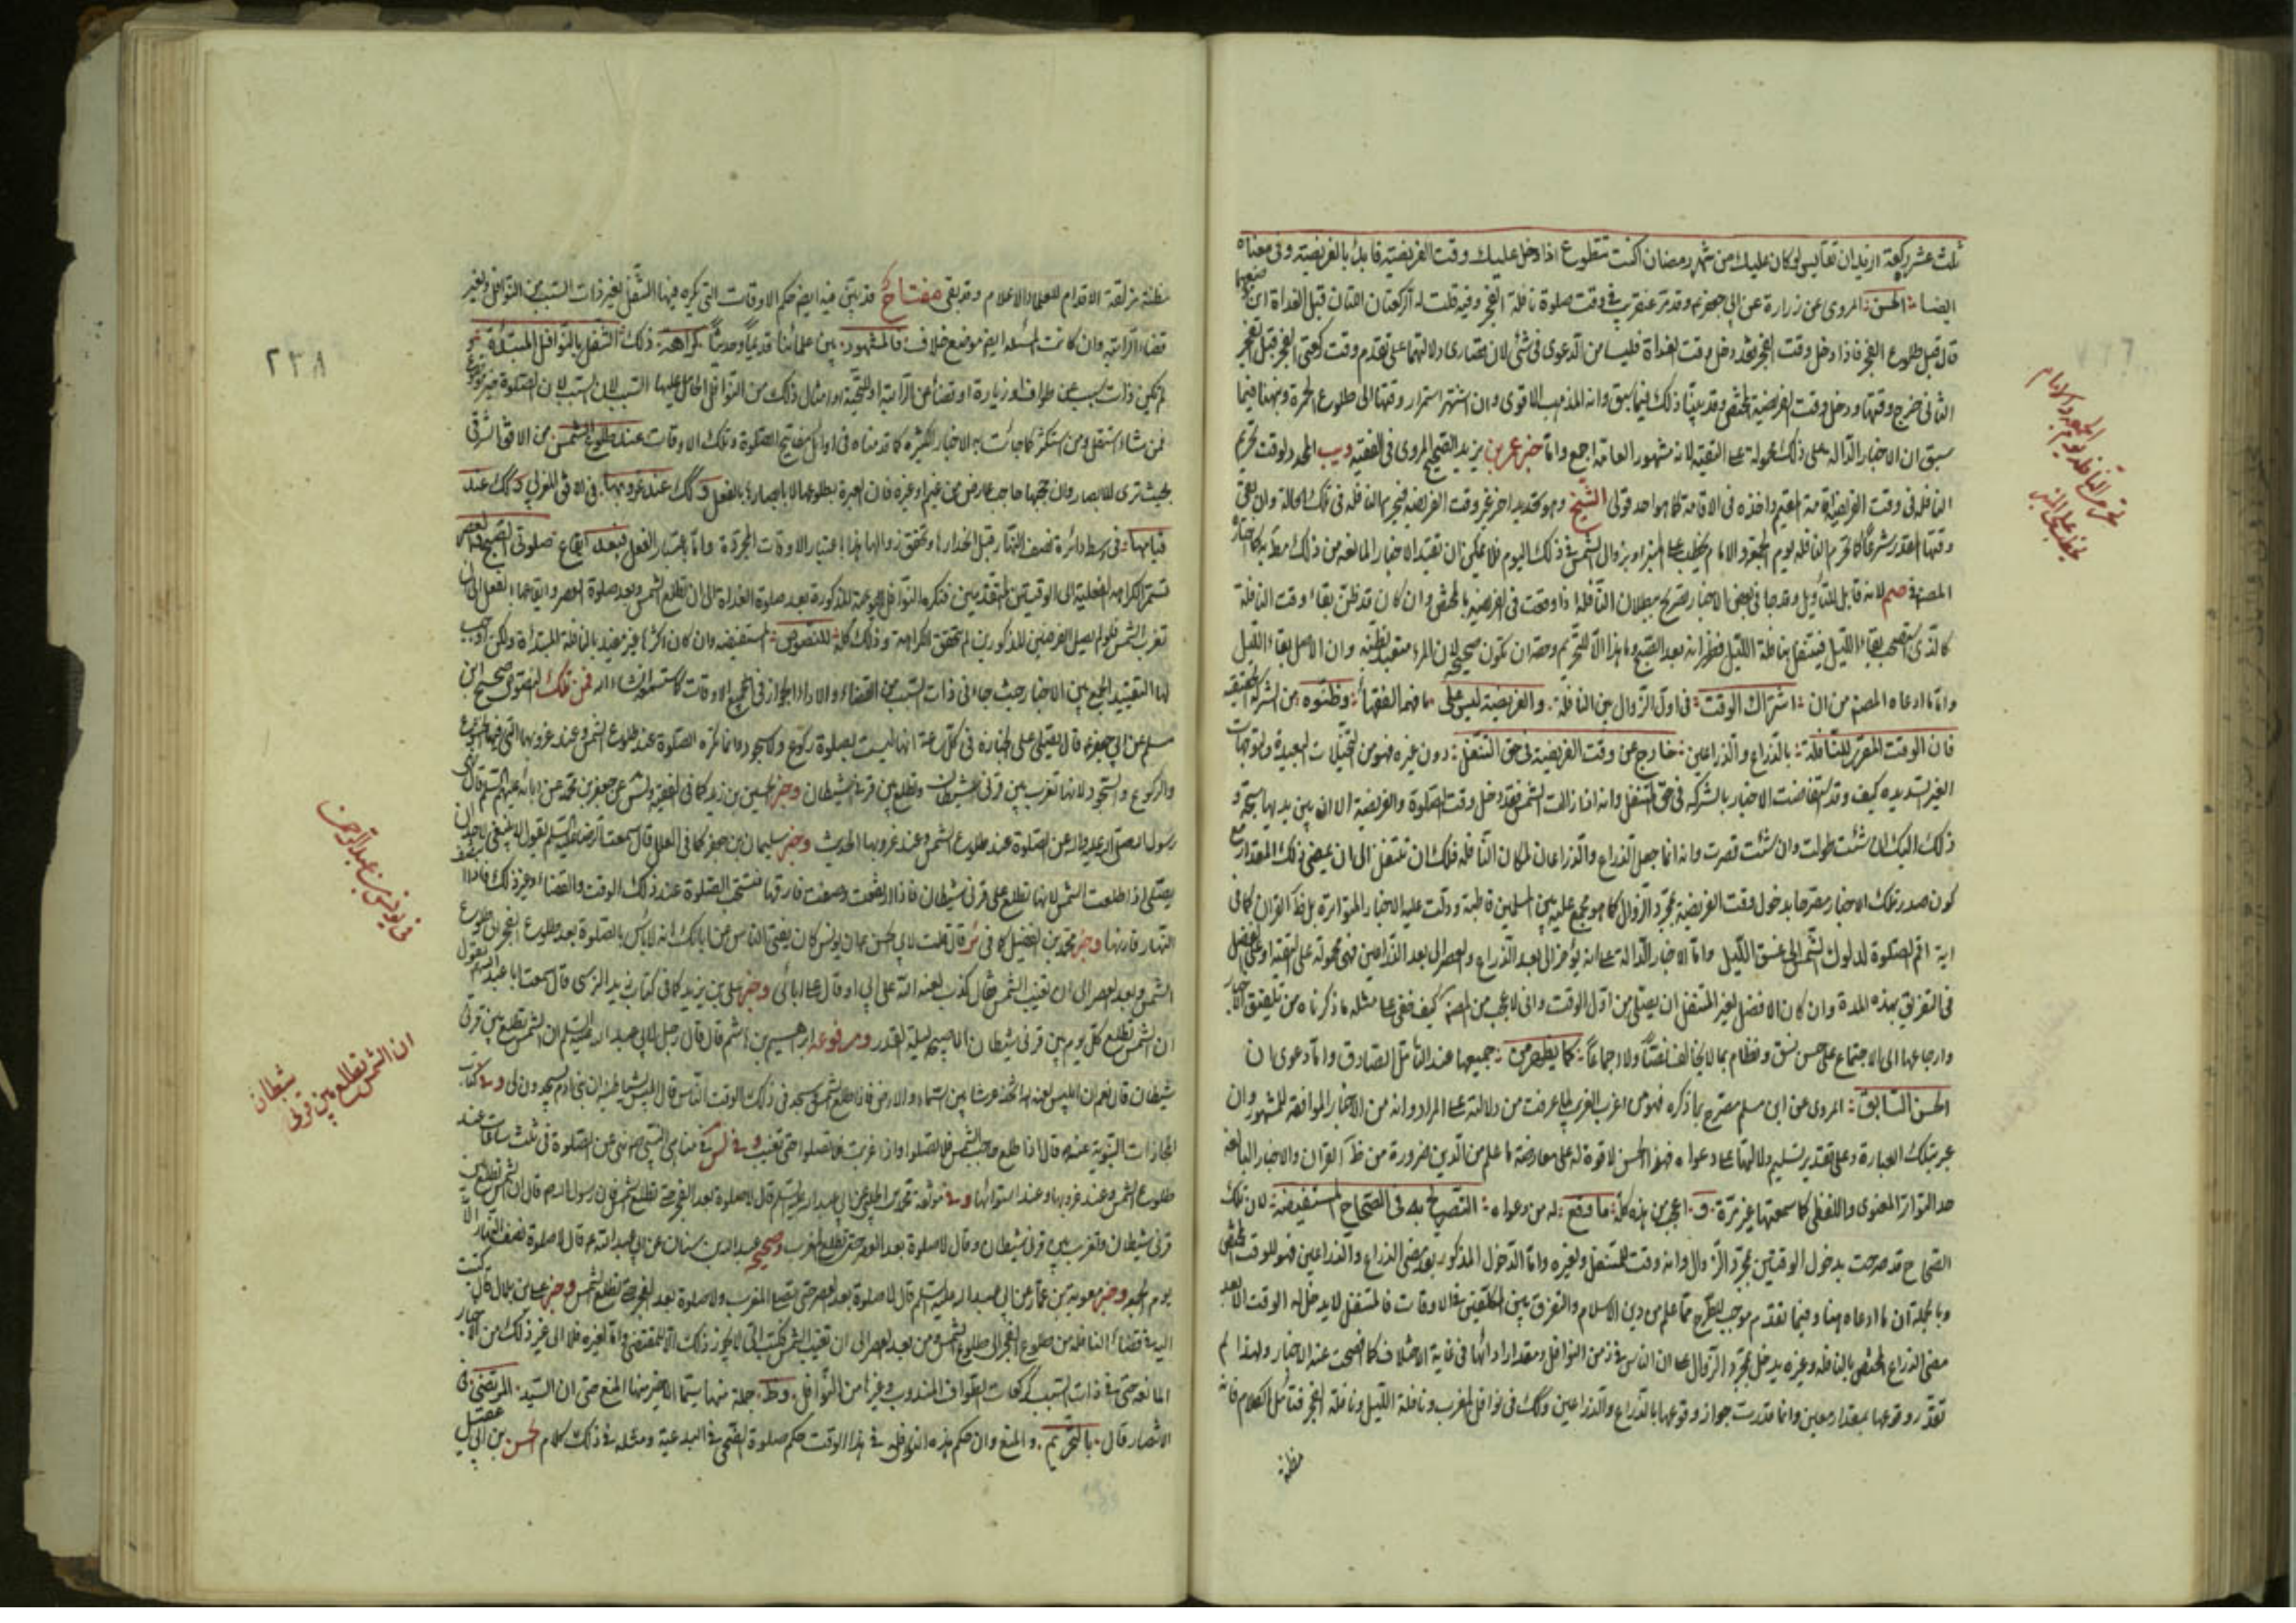 ثلث عشر ركعة اتريد ان تقايس لو كان عليك من شهر رمضان اكنت تتطوع اذا دخل عليك وقت الفريضة فابدأ بالفريضة وفى معناه
ايضا الحسن المروى عن زرارة عن ابى جعفر ع وقد مر عنقريب فى وقت صلوة نافلة الفجر وفيه قلت له الركعتان اللتان قبل الغداة اين
قال قبل طلوع الفجر فاذا دخل وقت الفجر فقد دخل وقت الغداة فليسا من الدعوى فى شئ لان دلالتهما على تقدم وقت ركعتى الفجر قبل الفجر
الثانى خرج وقتها ودخل وقت الفريضة وقد بينا ذلك فيما سبق وانه المذهب الاقوى وان اشتهر استمرار وقتها الى طلوع الحمرة وبينا فيما
سبق ان الاخبار الدالة على ذلك محمولة على التقية لانه مشهور العامة اجمع واما خبر عمر بن يزيد الصحيح المروى فى الفقيه ويب المحدد لوقت تحريم
النافلة فى وقت الفريضة واخذه فى الاقامة كما هو احد قولى الشيخ وهو تحديد اخر غير وقت الفريضة فيحرم النافلة فى تلك الحالة وان بقى
وقتها المقدر شرعا كما تحرم النافلة يوم الجمعة والامام يخطب على المنبر او بزوال الشمس فى ذلك اليوم فلا يمكن ان تقيد الاخبار المانعة من ذلك
لانه قابل للتأويل وقد جاء فى بعض الاخبار تصريح ببطلان النافلة اذا وقعت فى الفريضة وان كان قد ظن بقاء وقت النافلة
بقاء الليل فيتنفل بنافلة الليل فظهر انه بعد الصبح وما هذا الا للتحريم المرء متعبد بظنه وان الاصل بقاء الليل
واما ما ادعاه المصنف من ان اشتراك الوقت فى اول الزوال بين النافلة والفريضة ليس على ما فهمه الفقهاء وظنوه من الشركة الحقيقية
فان الوقت المقرر للنافلة بالذراع والذراعين خارج عن وقت الفريضة فى حق المتنفل دون غيره فهو من التخيلات البعيدة والتوجيهات
الغير السديدة كيف وقد استفاضت الاخبار بالشركة فى حق المتنفل وانه اذا زالت الشمس فقد دخل وقت الصلوة والفريضة الا ان بين يديها سبحة و
ذلك اليك ان شئت طولت وان شئت قصرت وانه انما جعل الذراع والذراعان لمكان النافلة فلك ان تتنفل الى ان يمضى ذلك المقدار مع
كون صدر تلك الاخبار مصرحا بدخول وقت الفريضة بمجرد الزوال كما هو مجمع عليه بين المسلمين قاطبة ودلت عليه الاخبار المتواترة بل ظ القران كما فى
اية اقم الصلوة لدلوك الشمس الى غسق الليل واما الاخبار الدالة على انه يؤخر الى بعد الذراع والعصر الى بعد الذراعين فهى محمولة على التقية او على الفضل
فى التفريق بهذه المدة وان كان الافضل لغير المتنفل ان يصلى من اول الوقت وانى لاعجب من المصنف كيف خفى عليه مثله ما ذكرناه من تلفيق الاخبار
وارجاعها الى الاجتماع على حسن نسق ونظام بما لا يخالف نصا ولا اجماعا كما يظهر من جميعها عند التأمل الصادق واما دعوى ان
الحسن السابق المروى عن ابن مسلم مصرح بما ذكره فهو من اغرب الغرايب لما عرفت من دلالته على المراد وانه من الاخبار الموافقة للمشهور وان
عبر بتلك العبارة وعلى تقدير تسليم دلالتها على دعواه فهذا الحسن لا قوة له على معارضة ما علم من الدين ضرورة من ظ القران والاخبار البالغة
حد التواتر المعنوى واللفظى كما سمعتها غير مرة و اعجب من هذه كله ما وقع له من دعواه التصريح به فى الصحاح المستفيضة لان تلك
الصحاح قد صرحت بدخول الوقتين بمجرد الزوال وانه وقت للمتنفل ولغيره واما الدخول المذكور بعد مضى الذراع والذراعين فهو للوقت المختص
وبالجملة ان ما ادعاه هنا وفيما تقدم موجب للطرح مما علم من دين الاسلام والتفرق بين المكلفين فى الاوقات فالمتنفل لا يدخل له الوقت الا بعد
مضى الذراع المختص بالنافلة وغيره يدخل بمجرد الزوال على ان الناس فى زمن النوافل ومقدار ادائها فى غاية الاختلاف كما افصحت عنه الاخبار ولهذا لم
تقدر وقوعها بمقدار معين وانما قدرت جواز وقوعها بالذراع والذراعين وكك فى نوافل المغرب ونافلة الليل ونافلة الفجر فتأمل الكلام فانه
مظنة
تحريم النافلة يوم الجمعة والامام
يخطب على المنبر
مظنة مزلقة الاقدام للعلماء الاعلام وقد بقى مفتاح قد بين فيه ايضا حكم الاوقات التى يكره فيها التنفل بغير ذات السبب من النوافل ولغير
قضاء الراتبة وان كانت المسئلة ايضا موضع خلاف فالمشهور بين علمائنا قديما وحديثا كراهة ذلك التنفل بالنوافل المبتدأة
لم تكن ذات سبب من طواف او زيارة او قضاء من الراتبة او للتحية وامثال ذلك من النوافل الصلوة خير موضوع
فمن شاء استقل ومن شاء استكثر كما جائت به الاخبار الكثيرة كما قدمناه فى اوائل مفاتيح الصلوة وتلك الاوقات عند طلوع الشمس من الافق الشرقى
بحيث ترى للابصار وان حجبها حاجب عارض من غيم او غيره فان العبرة بطلوعها لا بابصارها بالفعل وكك عند غروبها فى الافق الغربى وكك عند
قيامها فى وسط دائرة نصف النهار قبل انحدارها وتحقق زوالها هذا باعتبار الاوقات المجردة واما باعتبار الفعل فبعد ايقاع صلوتى الصبح والعصر
فتستمر الكراهة الفعلية الى الوقتين المتقدمين فتكره النوافل المذكورة بعد صلوة الغداة الى ان تطلع الشمس وبعد صلوة العصر وايقاعها بالفعل الى ان
تغرب الشمس فلو لم يصل الفرضين المذكورين لم تتحقق الكراهة وذلك كله للنصوص المستفيضة وان كان اكثرها غير مقيد بالنافلة المبتدأة ولكن اوجب
لها التقييد الجمع بين الاخبار حيث جاء فى ذات السبب من القضاء والاداء الجواز فى جميع الاوقات كما ستسمعه انشاء الله فمن تلك النصوص صحيح ابن
مسلم عن ابى جعفر ع قال يصلى على الجنازة فى كل ساعة انها ليست بصلوة ركوع ولا سجود وانما تكره الصلوة عند طلوع الشمس وعند غروبها التى فيها الخشوع
والركوع والسجود لانها تغرب بين قرنى الشيطان وتطلع بين قرنى الشيطان وخبر الحسين بن زيد كما فى الفقيه عن جعفر بن محمد عن ابائه عليهم السلام قال نهى
رسول الله صلى الله عليه واله عن الصلوة عند طلوع الشمس وعند غروبها الحديث وخبر سليمان بن جعفر كما فى العلل قال سمعت الرضا عليه السلم يقول لا ينبغى لاحد ان
يصلى اذا طلعت الشمس لانها تطلع على قرنى شيطان فاذا ارتفعت وصفت فارقها فتستحب الصلوة عند ذلك الوقت والقضاء وغير ذلك فاذا انتصف
النهار قارنها وخبر محمد بن الفضيل كما فى ئر قال قلت لابى الحسن ع ان يونس كان يفتى الناس عن ابائك انه لا بأس بالصلوة بعد طلوع الفجر الى طلوع
الشمس وبعد العصر الى ان تغيب الشمس فقال كذب لعنه الله على ابى او قال على ابائى وخبر على بن يزيد كما فى كتاب زيد النرسى قال سمعت ابا عبد الله ع يقول
ان الشمس تطلع كل يوم بين قرنى شيطان الا صبيحة ليلة القدر ومرفوعة ابراهيم بن هاشم قال قال رجل لابى عبد الله عليه السلم ان الشمس تطلع بين قرنى
شيطان قال نعم ان ابليس لعنه الله اتخذ عرشا بين السماء والارض فاذا طلع الشمس وسجد فى ذلك الوقت الناس قال ابليس لشياطينه ان بنى ادم يسجدون لى و كتاب
المجازات النبوية عنه ص قال اذا طلع حاجب الشمس فلا تصلوا حتى واذا غربت فلا تصلوا حتى تغيب وفى مناهى النبى ص انه نهى عن الصلوة فى ثلث ساعات عند
طلوع الشمس وعند غروبها وعند استوائها و موثقة محمد الحلبى عن ابى عبد الله عليه السلم قال لا صلوة بعد الفجر حتى تطلع الشمس فان رسول الله ص قال ان الشمس تطلع بين
قرنى شيطان وتغرب بين قرنى شيطان وقال لا صلوة بعد العصر حتى تصلى المغرب وصحيح عبد الله بن سنان عن ابى عبد الله ع قال لا صلوة نصف النهار الا
يوم الجمعة وخبر معوية بن عمار عن ابى عبد الله عليه السلم قال لا صلوة بعد العصر حتى تصلى المغرب ولا صلوة بعد الفجر حتى تطلع الشمس وخبر على بن بلال قال كتبت
اليه فى قضاء النافلة من طلوع الفجر الى طلوع الشمس ومن بعد العصر الى ان تغيب الشمس فكتب الى لا يجوز ذلك الا للمقتضى واما لغيره فلا الى غير ذلك من الاخبار
المانعة حتى فى ذات السبب كركعات الطواف المندوب وغيرها من النوافل وظ جملة منها سيما الاخير منها المنع حتى ان السيد المرتضى فى
الانتصار قال بالتحريم والمنع وان حكم هذه النوافل فى هذا الوقت حكم صلوة الضحى فى البدعية ومثله فى ذلك كلام الحسن بن ابى عقيل
٢٣٨
فى يونس بن عبد الرحمن
ان الشمس تطلع بين قرنى
شيطان